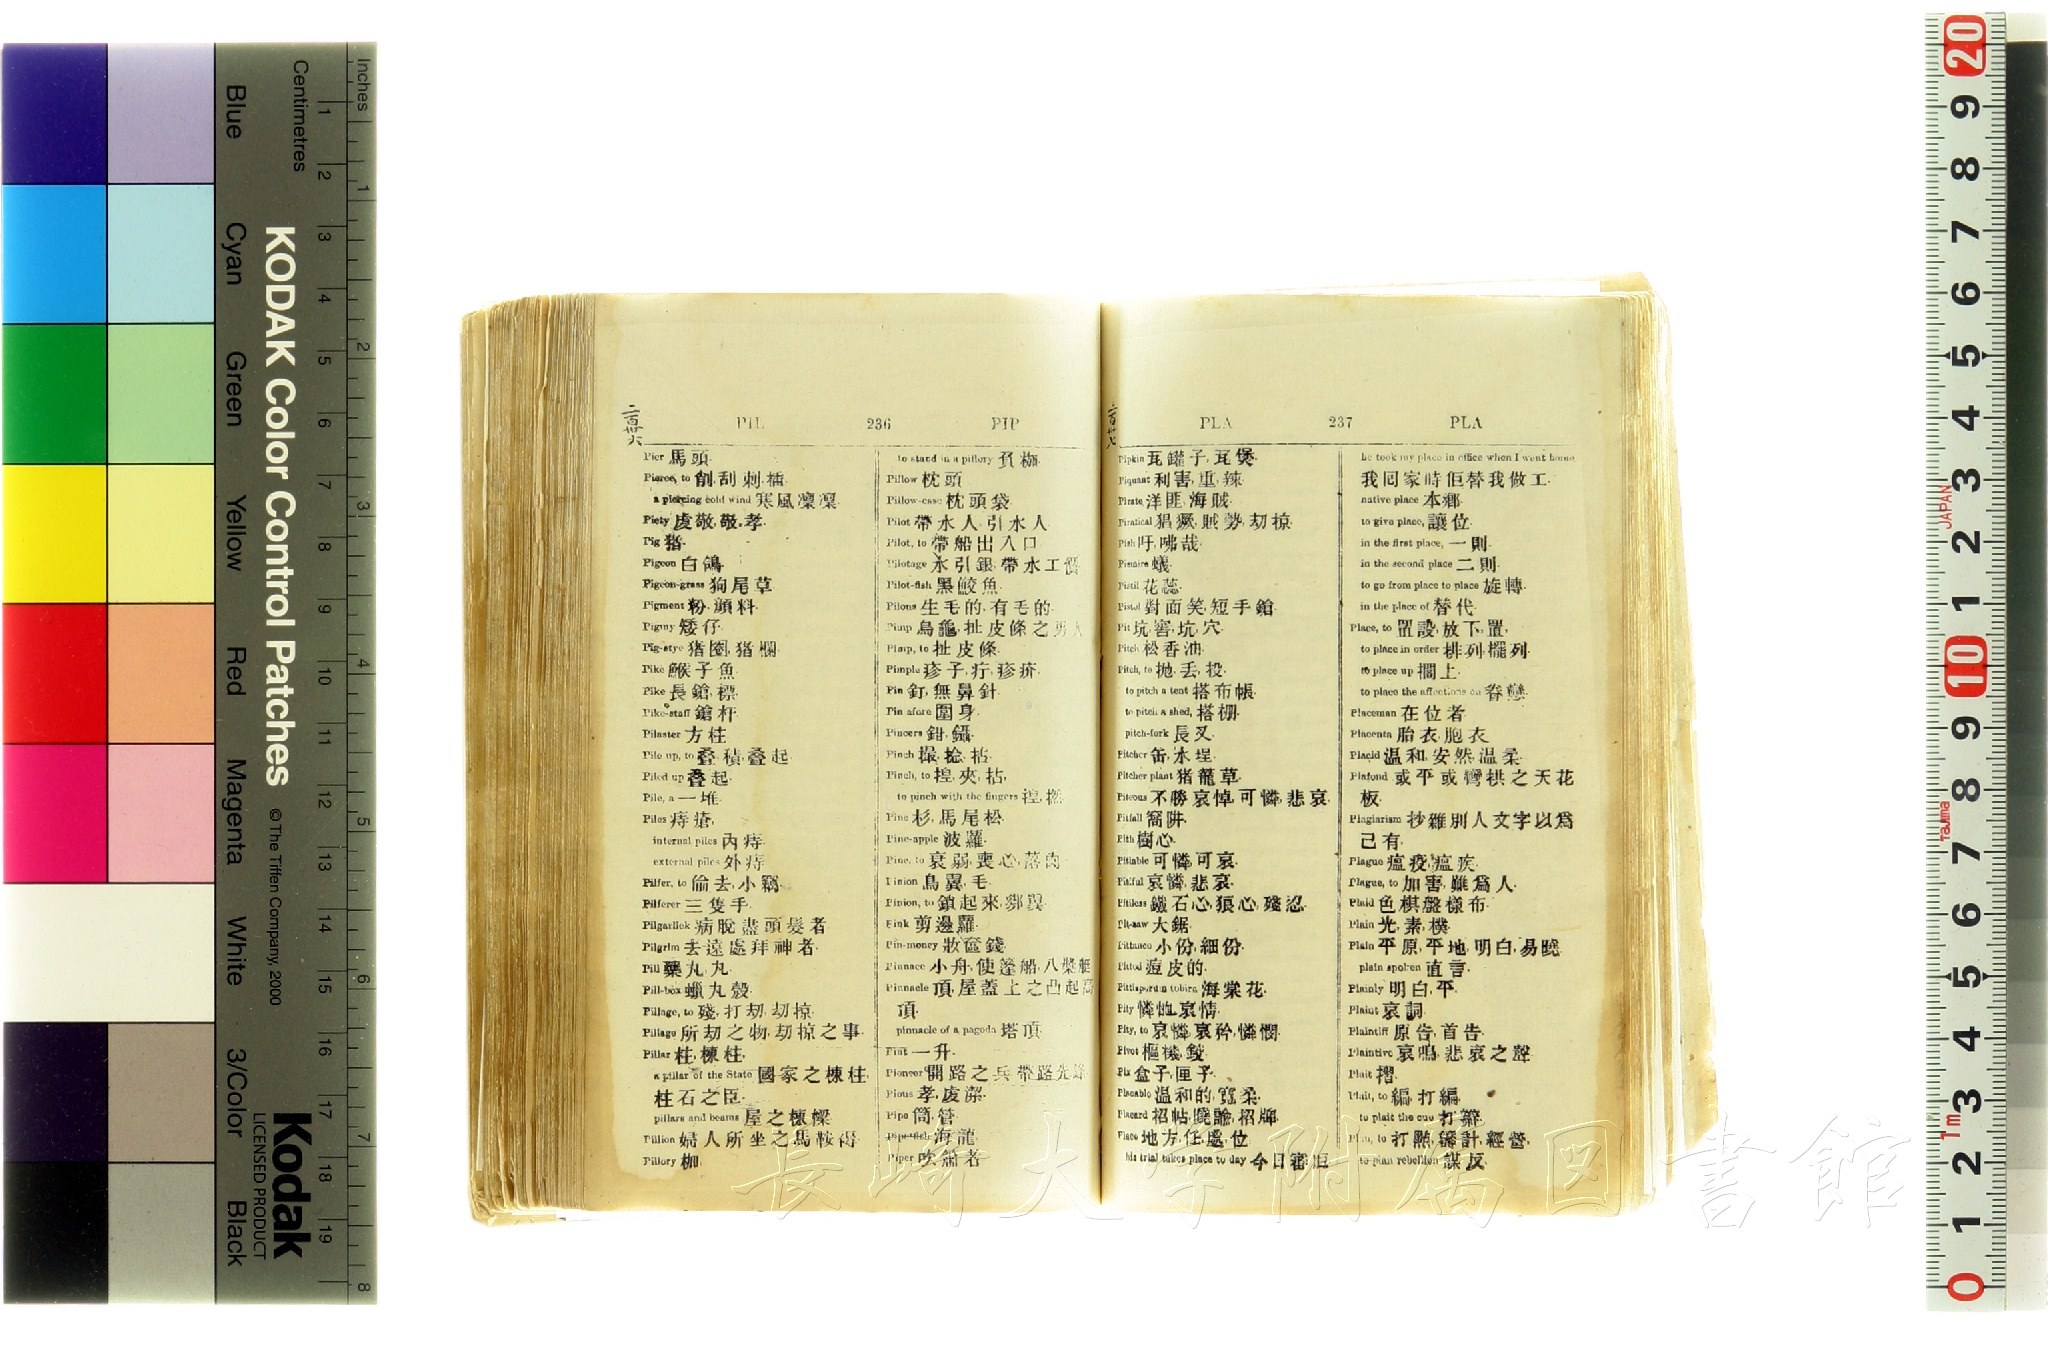 Inches
Centimetres
KODAK Color Control Patches
© The Tiffen Company, 2000
Kodak
LICENSED PRODUCT
Blue
Cyan
Green
Yellow
Red
Magenta
White
3/Color
Black
二百卅六
PIL 236 PIP
Pier 馬頭
Pierce, to 刮 刺
a piercing cold wind 寒風凜凜
Piety 虔敬, 敬, 孝
Pig 猪
Pigeon 白鴿
Pigeon-grass 狗尾草
Pigment 粉, 顏料
Pigmy 矮仔
Pig-stye 猪圈, 猪欄
Pike 鯸子魚
Pike 長鎗, 標
Pike-staff 鎗杆
Pilaster 方柱
Pile up, to 叠積, 叠起
Piled up 叠起
Pile, a 一堆
Piles 痔瘡
internal piles 內痔
external piles 外痔
Pilfer, to 偷去, 小竊
Pilferer 三隻手
Pilgarlick 病脫盡頭髮者
Pilgrim 去遠處拜神者
Pill 藥丸, 丸
Pill-box 蠟丸殼
Pillage, to 殘, 打刼, 刼掠
Pillage 所刼之物, 刼掠之事
Pillar 柱, 棟柱
a pillar of the State 國家之棟柱
柱石之臣
pillars and beams 屋之棟樑
Pillion 婦人所坐之馬鞍
Pillory 枷
to stand in a pillory 負枷
Pillow 枕頭
Pillow-case 枕頭袋
Pilot 帶水人, 引水人
Pilot, to 帶船出入口
Pilotage 水引銀, 帶水工
Pilot-fish 黑鮫魚
Pilous 生毛的, 有毛的
Pimp 烏龜, 扯皮條之男人
Pimp, to 扯皮條
Pimple 疹子, 疔, 疹疥
Pin 釘, 無鼻針
Pin afore 圍身
Pincers 鉗, 鑷
Pinch 撮, 捻, 拈
Pinch, to 揑, 夾, 拈
to pinch with the fingers
Pine 杉, 馬尾松
Pine-apple 波羅
Pine, to 衰弱, 喪心, 落肉
Pinion 鳥翼, 毛
Pinion, to 鎖起來
Pink 剪邊羅
Pin-money 妝奩錢
Pinnace 小舟, 使篷船, 八槳艇
Pinnacle 頂, 屋蓋上之凸起高
頂
pinnacle of a pagoda 塔頂
Pint 一升
Pioneer 開路之兵, 帶路先鋒
Pious 孝, 虔潔
Pipe 筒, 管
Pipe-fish 海龍
Piper 吹簫者
二百卅七
PLA 237 PLA
Pipkin 瓦罐子, 瓦煲
Piquant 利害, 重, 辣
Pirate 洋匪, 海賊
Piratical 猖獗, 賊勢, 刼掠
Pish 吁, 咈哉
Pismire 蟻
Pistil 花蕊
Pistol 對面笑, 短手鎗
Pit 坑, 窖, 坑, 穴
Pitch 松香油
Pitch, to 拋, 丢, 投
to pitch a tent 搭布帳
to pitch a shed, 搭棚
pitch-fork 長叉
Pitcher 缶, 水埕
Pitcher plant 猪籠草
Piteous 不勝哀悼, 可憐, 悲哀
Pitfall 窩阱
Pith 樹心
Pitiable 可憐, 可哀
Pitiful 哀憐, 悲哀
Pitiless 鐵石心, 狼心, 殘忍
Pit-saw 大鋸
Pittance 小份, 細份
Pitted 痘皮的
Pittisporum tobira 海棠花
Pity 憐恤, 哀情
Pity, to 哀憐, 哀矜, 憐憫
Pivot 樞機
Pix 盒子, 匣子
Placable 温和的, 寬柔
Placard 招帖, 曉諭, 招牌
Place 地方, 位
his trial takes place to day 今日審佢
he took my place in office when I went home
我囘家時佢替我做工
native place 本鄉
to give place, 讓位
in the first place, 一則
in the second place 二則
to go from place to place 旋轉
in the place of 替代
Place, to 置設, 放下, 置
to place in order 排列, 擺列
to place up 擱上
to place the affections on 眷戀
Placeman 在位者
Placenta 胎衣, 胞衣
Placid 温和, 安然, 温柔
Plafond 或平或彎拱之天花
板
Plagiarism 抄襲別人文字以爲
己有
Plague 瘟疫, 瘟疾
Plague, to 加害, 難爲人
Plaid 色棋盤樣布
Plain 光, 素, 樸
Plain 平原, 平地, 明白, 易曉
plain spoken 直言
Plainly 明白, 平
Plaint 哀詞
Plaintiff 原告, 首告
Plaintive 哀鳴, 悲哀之聲
Plait 摺
Plait, to 編, 打編
to plait the cue 打辮
to plan rebellion 謀反
長崎大学附属図書館
JAPAN
Tajima
1m